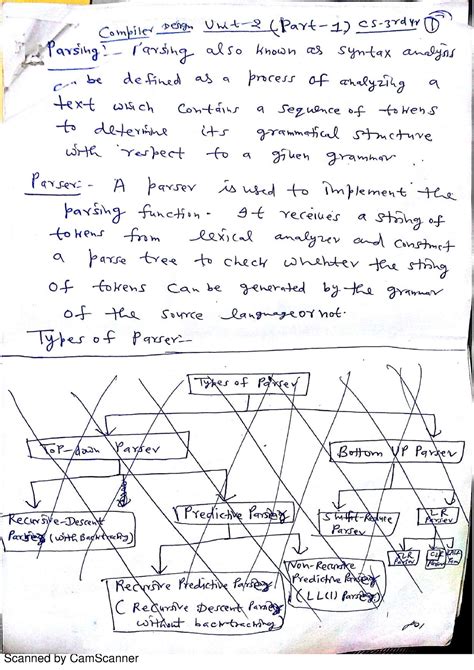 Compiler Design Unit-2 (Part-1) CS-3rd Yr ①
Parsing:- Parsing also known as syntax analysis
can be defined as a process of analyzing a
text which contains a sequence of tokens
to determine its grammatical structure
with respect to a given grammar.
Parser:- A parser is used to implement the
parsing function. It receives a string of
tokens from lexical analyzer and construct
a parse tree to check whether the string
of tokens can be generated by the grammar
of the source language or not.
Types of Parser:-
Types of Parser
Top-down Parser
Bottom UP Parser
Recursive-Descent
(with Backtracking)
Predictive Parser
Shift-Reduce
Parser
LR
Parser
SLR
Parser
CLR
Recursive Predictive Parser
(Recursive Descent Parser
without backtracking
Non-Recursive
Predictive Parser
(LL(1) Parser)
Scanned by CamScanner